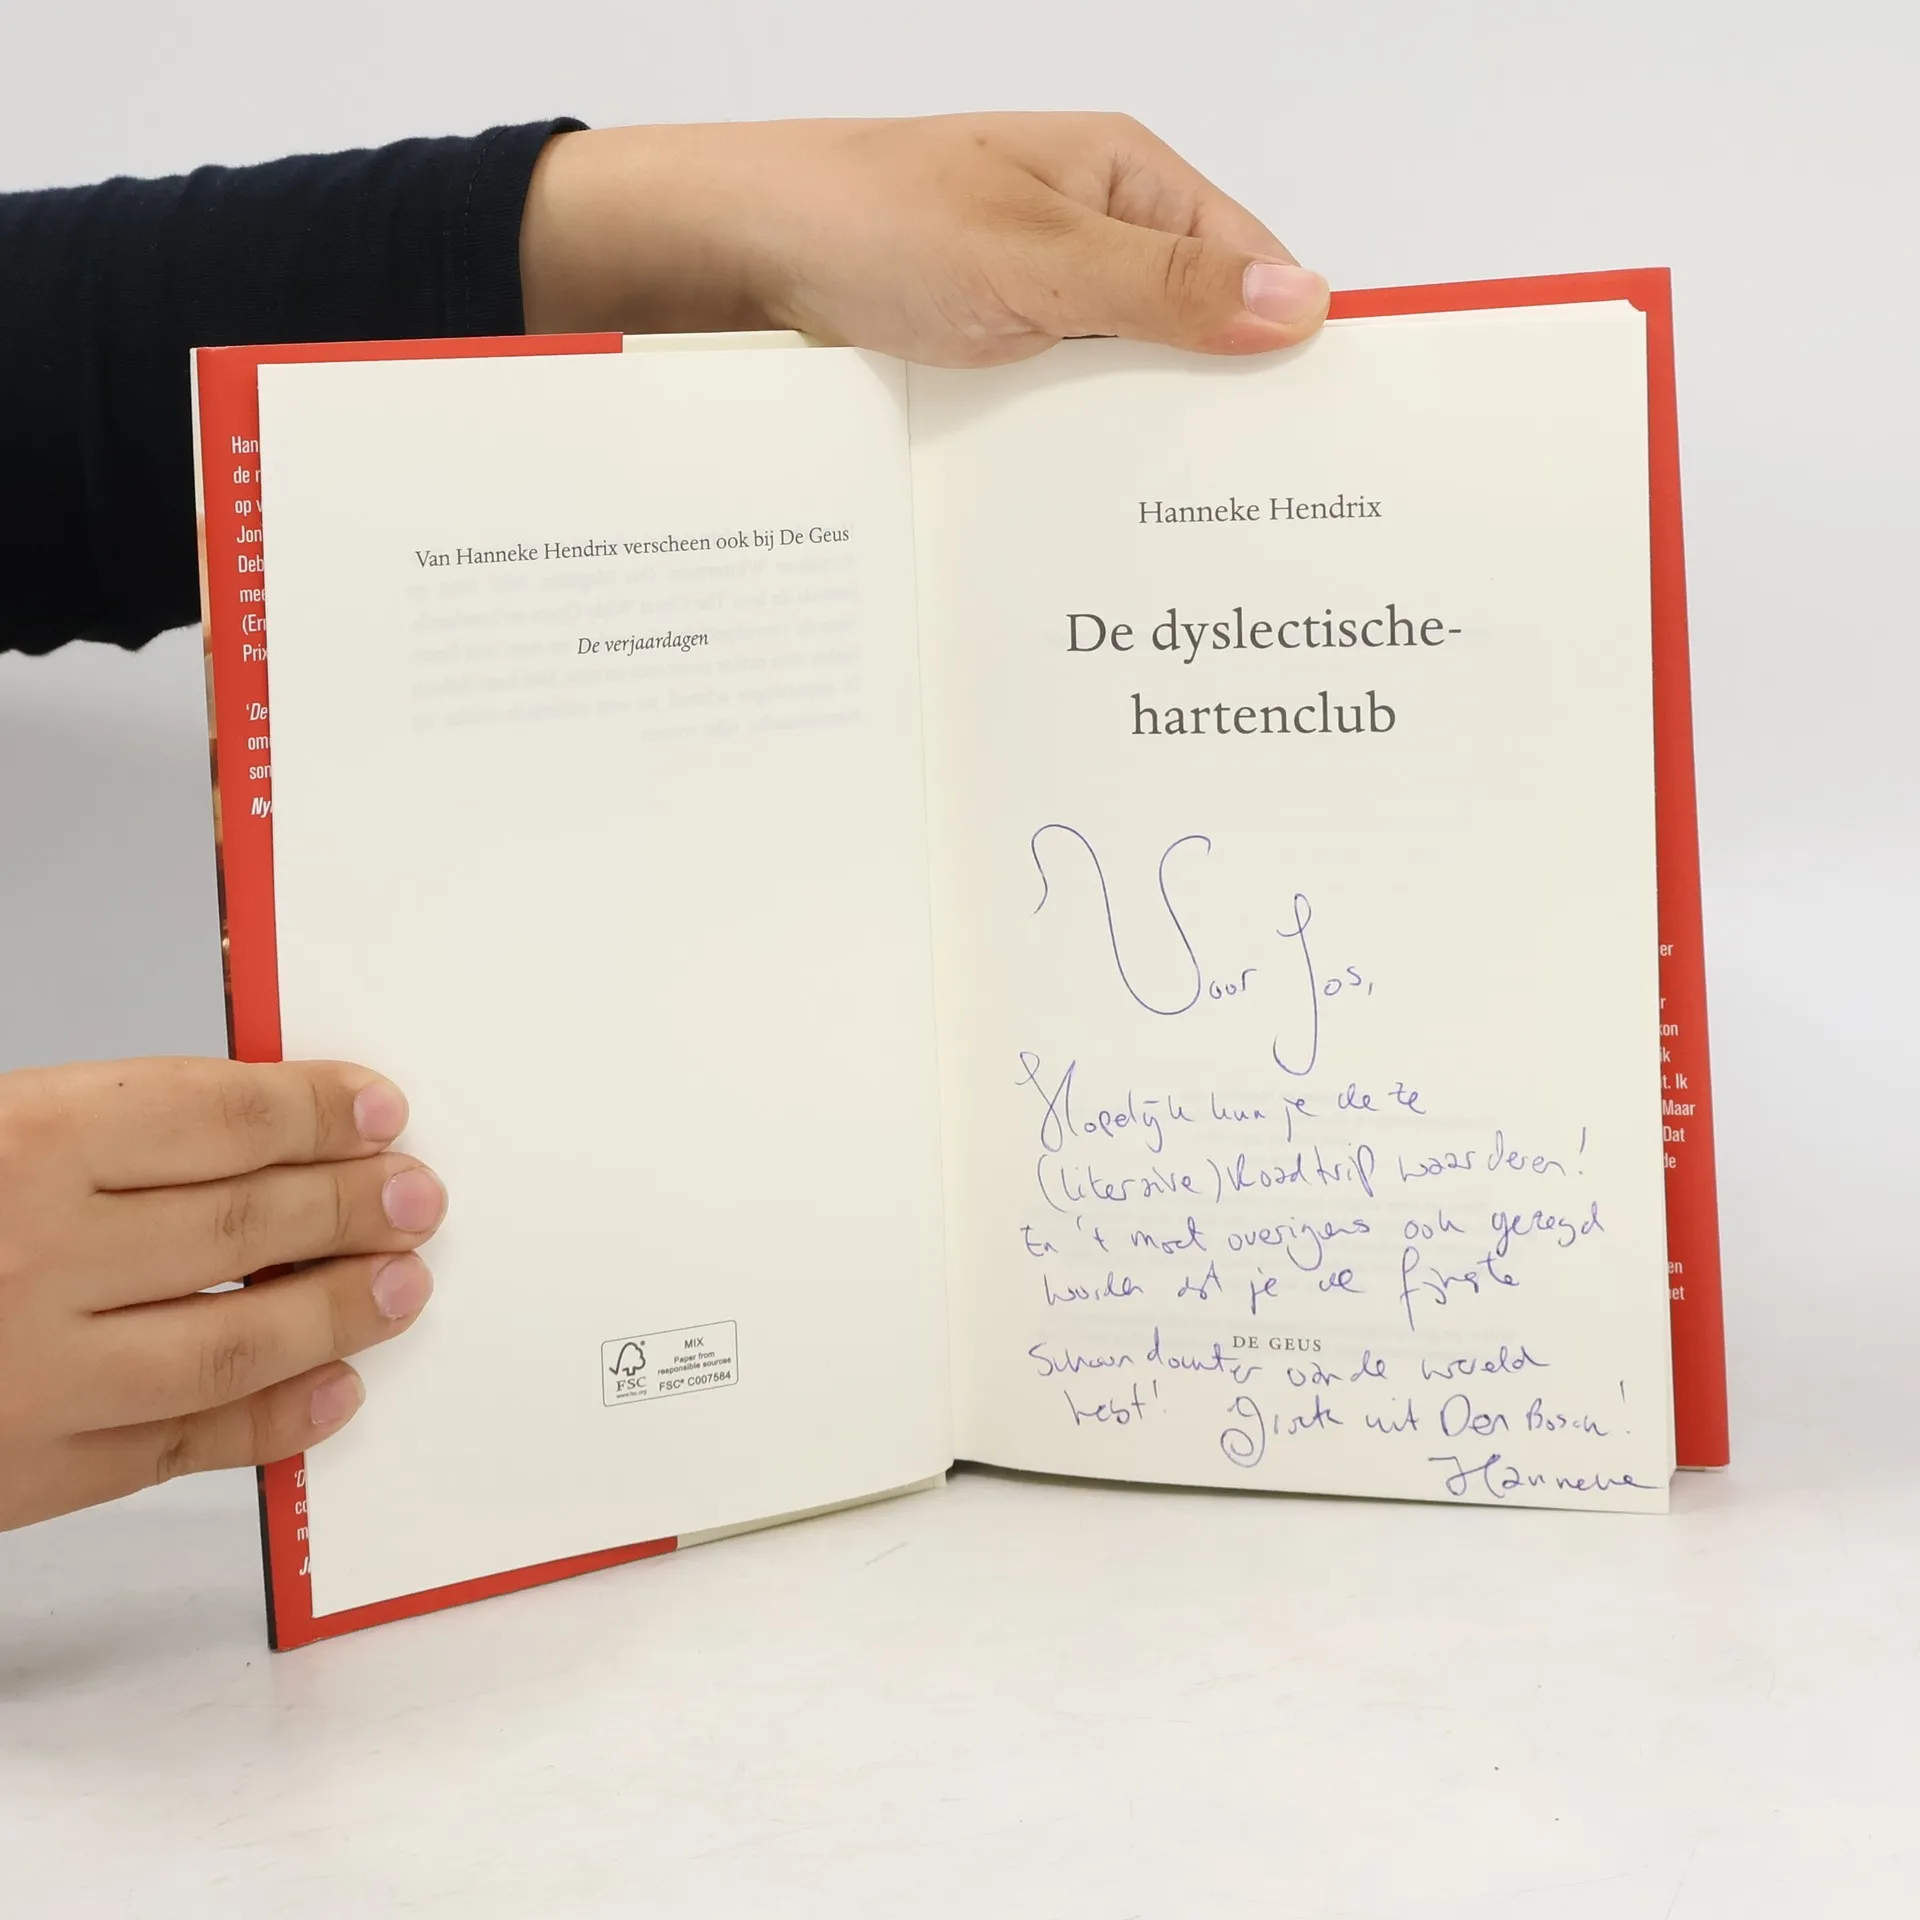 Han
de r
op v
Jon
Deb
mee
(Er
Prix
'De
om
son
Ny
Van Hanneke Hendrix verscheen ook bij De Geus
De verjaardagen
FSC
www.fsc.org
MIX
Paper from
responsible sources
FSC® C007584
Hanneke Hendrix
De dyslectische-
hartenclub
Voor Jos,
Hopelijk kun je de te
(literaire) Roadtrip waarderen!
En 't moet overigens ook gezegd
worden dat je de fijnste
DE GEUS
Schoondochter van de wereld
hebt! Groet uit Den Bosch!
Hanneke
er
r
kon
ik
t. Ik
Maar
Dat
de
en
et